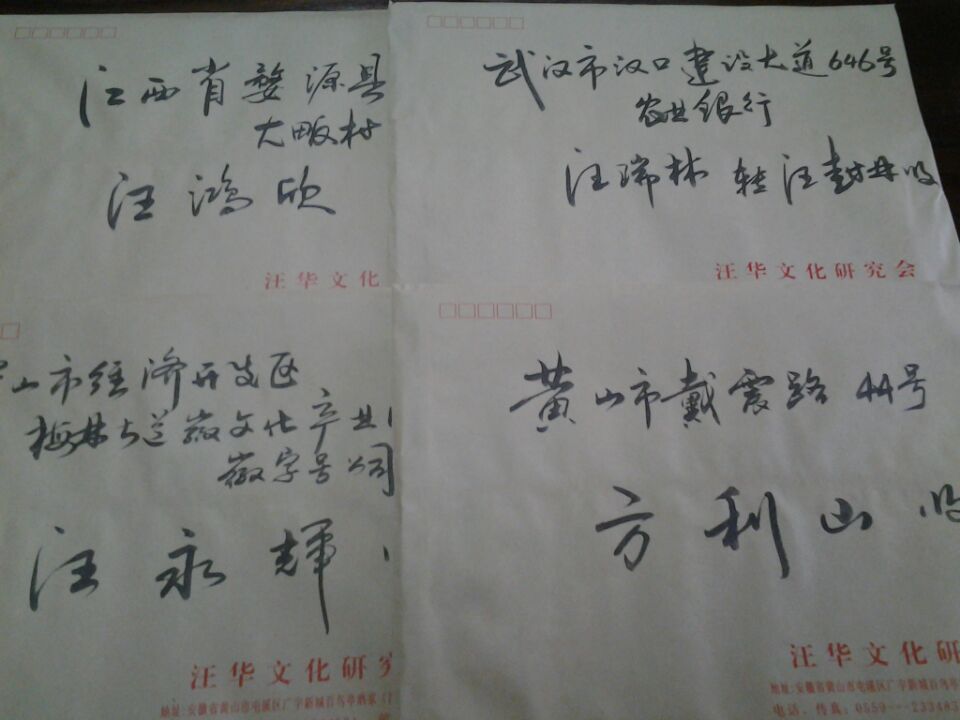 江西省婺源县
大畈村
汪鸿欣
汪华文化
武汉市汉口建设大道646号
农业银行
汪瑞林 转 汪 收
汪华文化研究会
山市经济开发区
梅林大道徽文化产业
徽字号公司
汪永辉
汪华文化研究
地址:安徽省黄山市屯溪区广宇新城百鸟亭酒家
黄山市戴震路44号
方利山收
汪华文化研
地址:安徽省黄山市屯溪区广宇新城百鸟亭
电话、传真:0559---233483